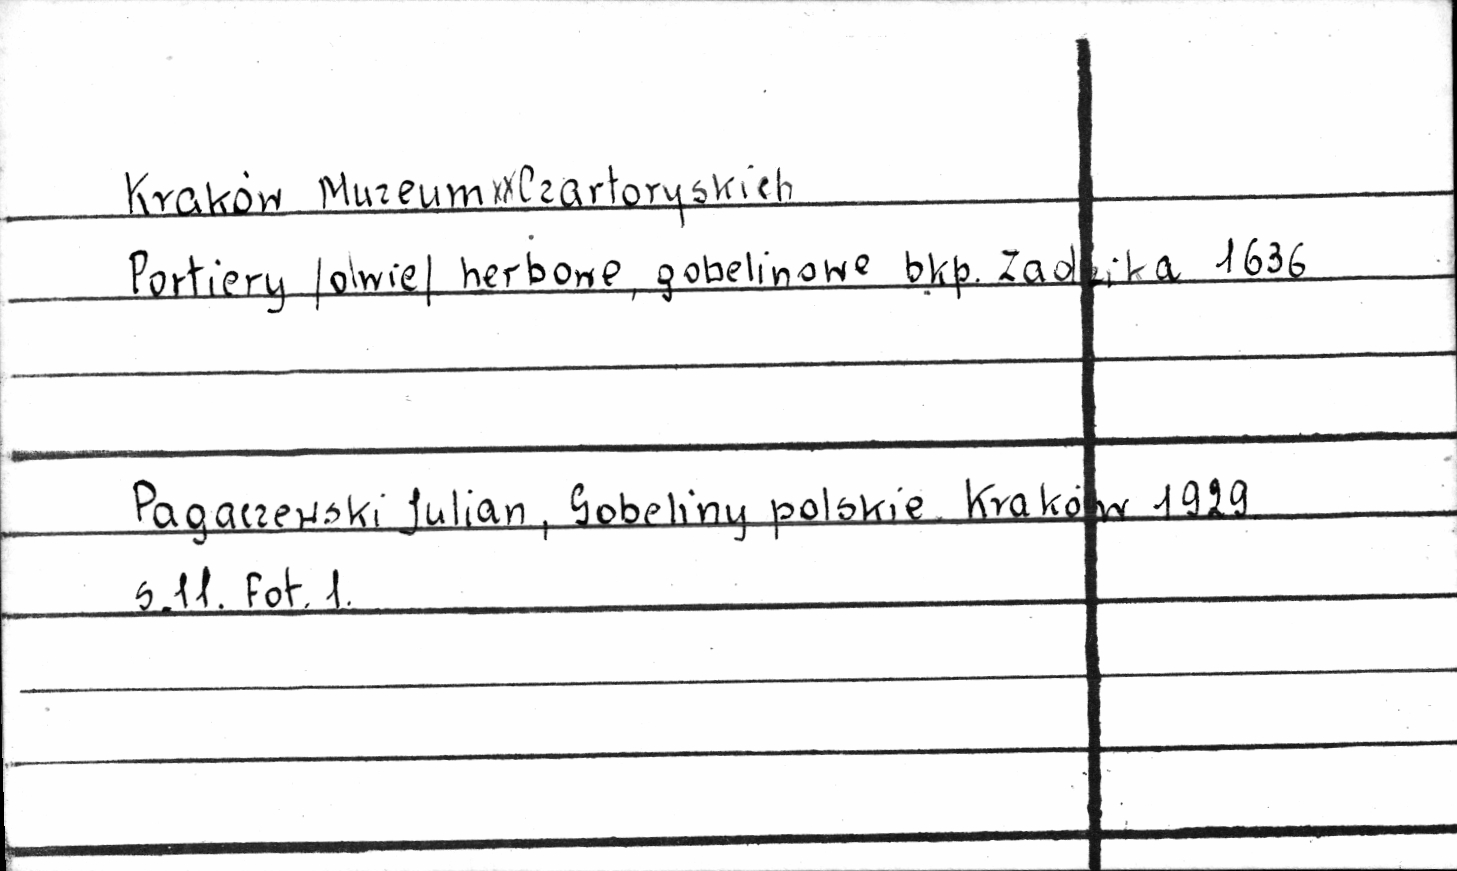 Kraków Muzeum xx Czartoryskich
Portiery /dwie/ herbowe, gobelinowe bkp. Zadzika 1636
Pagaczewski Julian, Gobeliny polskie. Kraków 1929
s.11. Fot. 1.